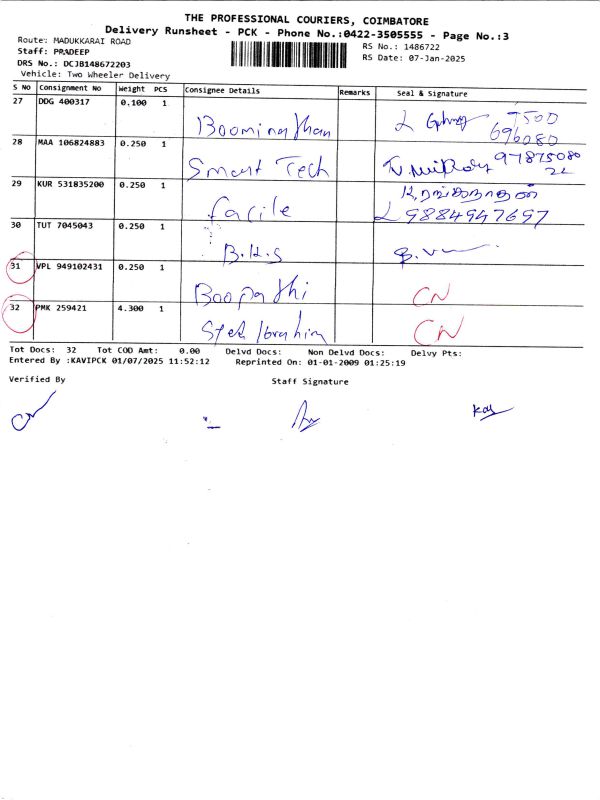 THE PROFESSIONAL COURIERS, COIMBATORE
Delivery Runsheet - PCK - Phone No.:0422-3505555 - Page No.:3
Route: MADUKKARAI ROAD
RS No.: 1486722
Staff: PRADEEP
RS Date: 07-Jan-2025
DRS No.: DCJB148672203
Vehicle: Two Wheeler Delivery
S No Consignment No Weight PCS Consignee Details Remarks Seal & Signature
27 DDG 400317 0.100 1
Boominathan 7500
696080
28 MAA 106824883 0.250 1
Smart Tech 97875080
22
29 KUR 531835200 0.250 1
facile 9884947697
30 TUT 7045043 0.250 1
B.H.S
31 VPL 949102431 0.250 1
Boopathi CN
32 PMK 259421 4.300 1
CN
Tot Docs: 32 Tot COD Amt: 0.00 Delvd Docs: Non Delvd Docs: Delvy Pts:
Entered By :KAVIPCK 01/07/2025 11:52:12 Reprinted On: 01-01-2009 01:25:19
Verified By Staff Signature